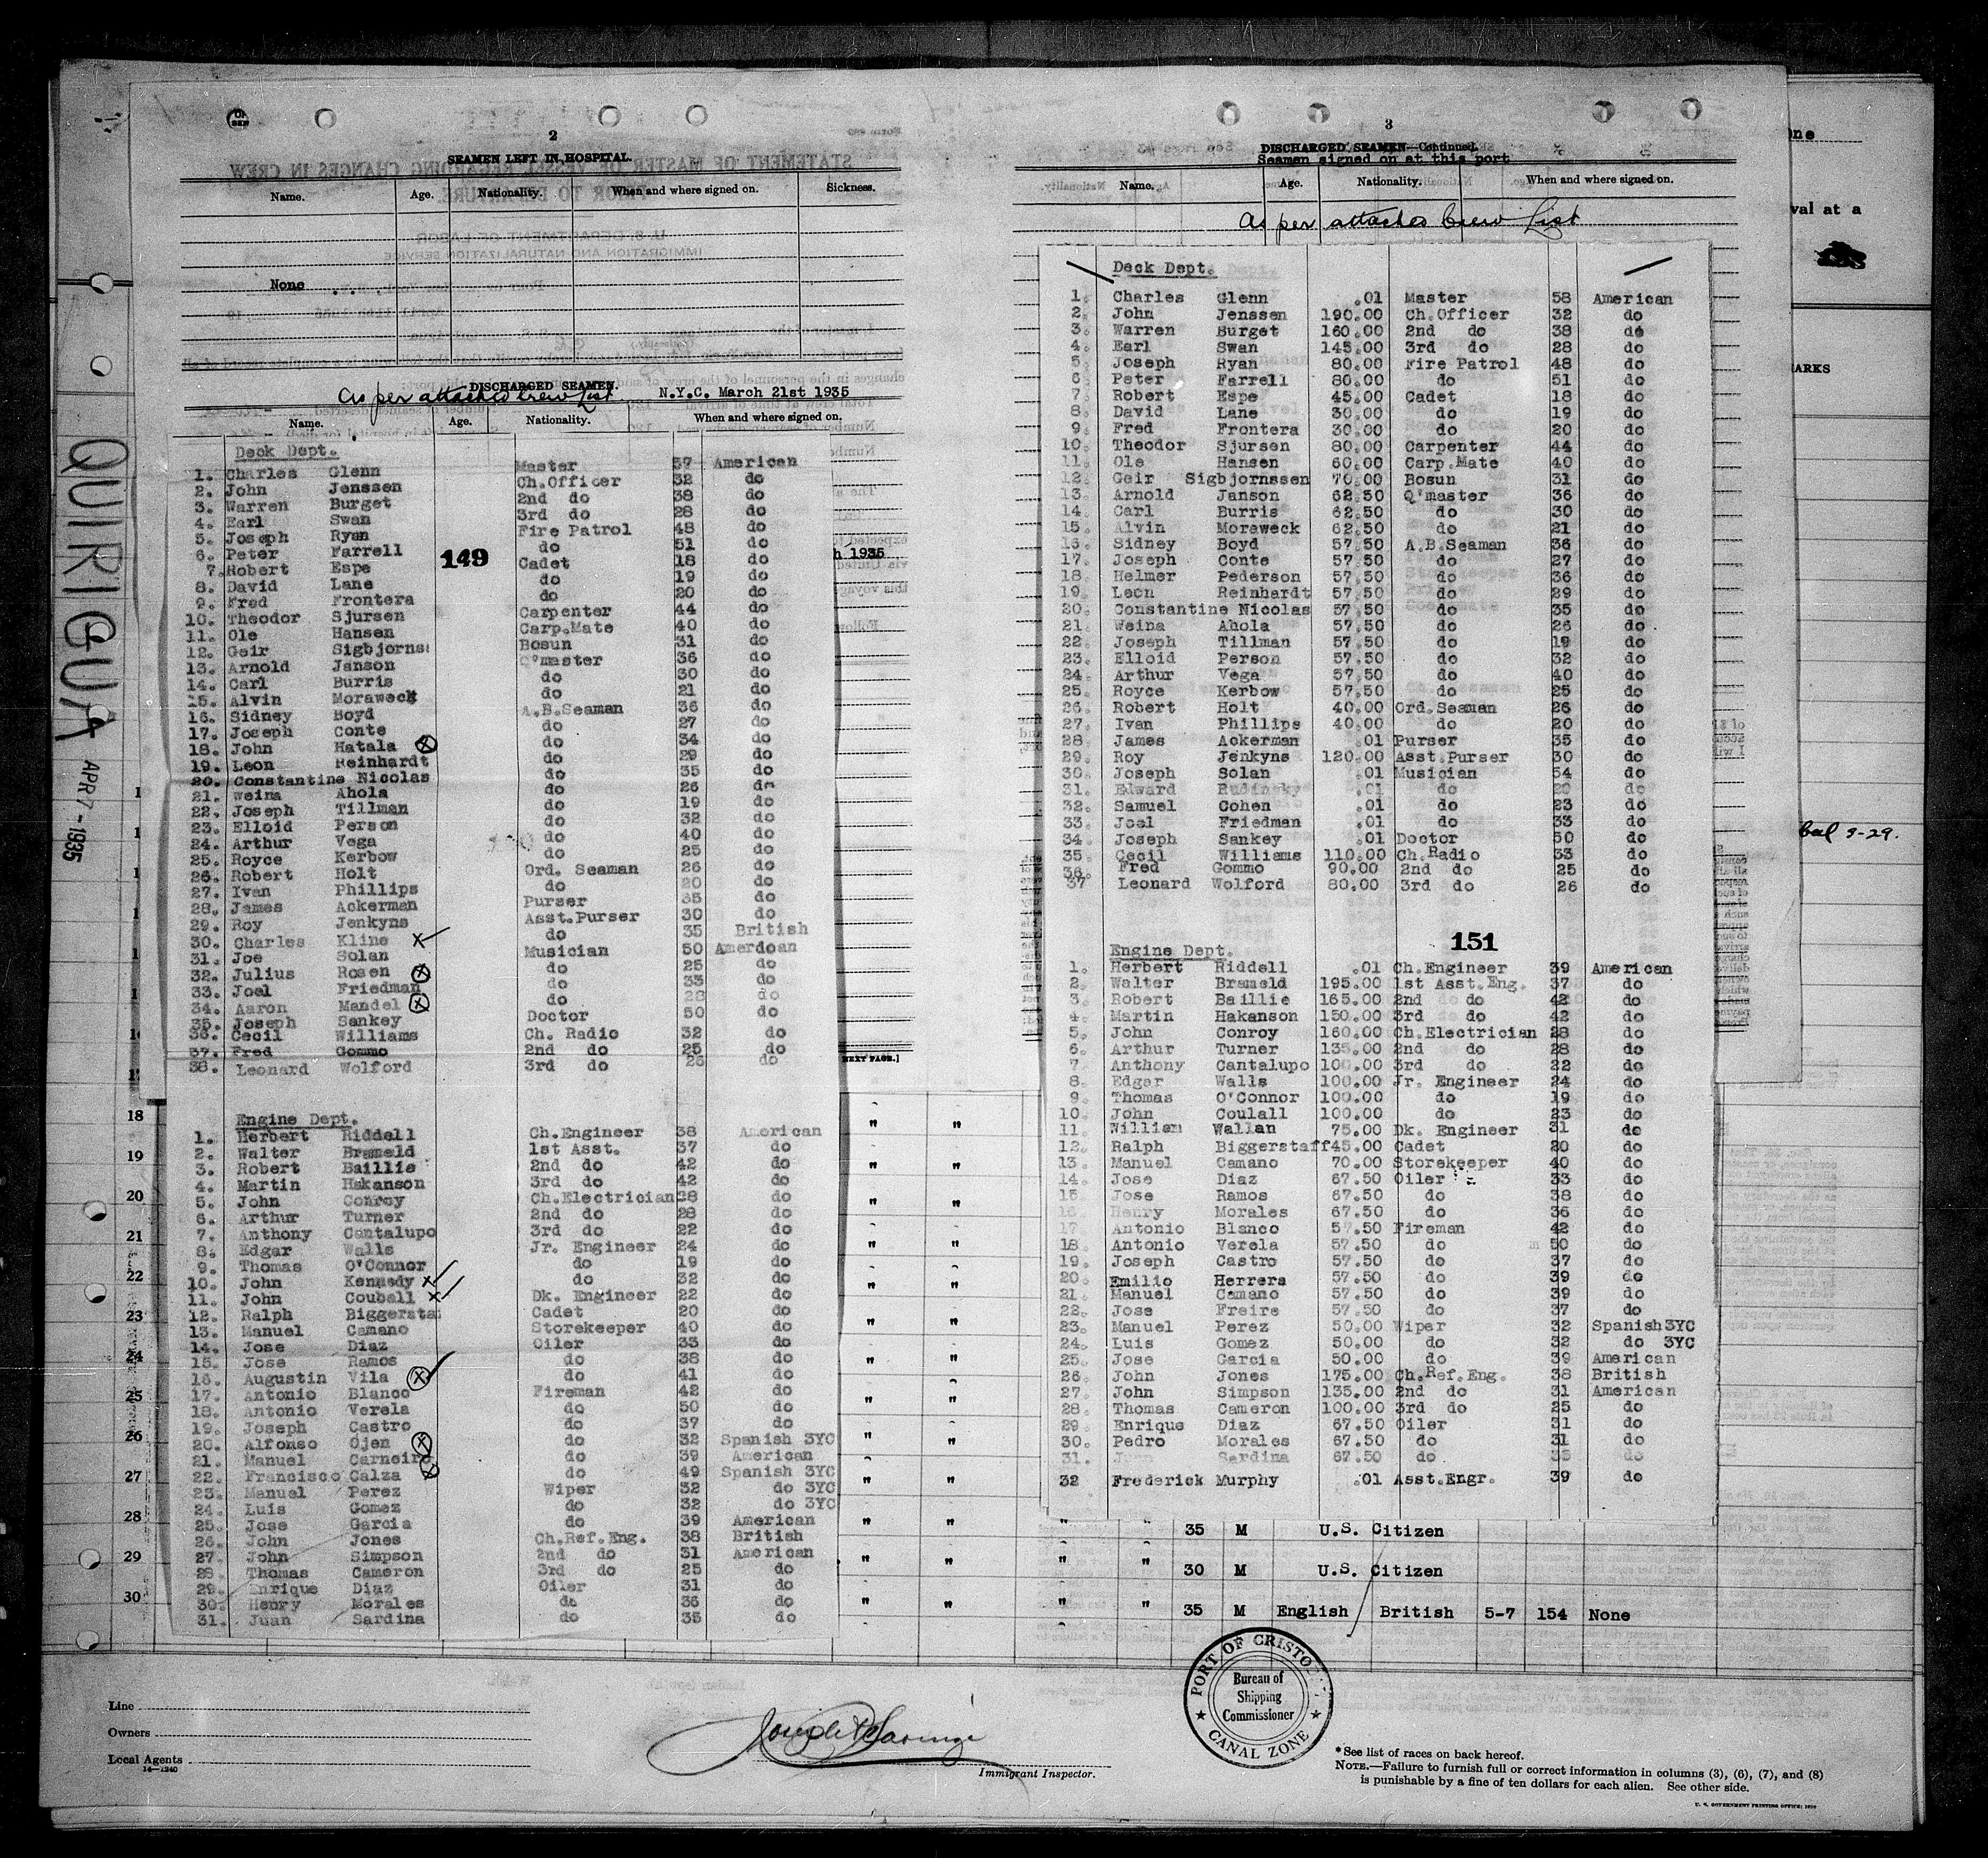 2
SEAMEN LEFT IN HOSPITAL.
Name. Age. Nationality. When and where signed on. Sickness.
None
DISCHARGED SEAMEN.
As per attached Crew List N.Y.C. March 21st 1935
Name. Age. Nationality. When and where signed on.
Deck Dept.
1. Charles Glenn Master 57 American
2. John Jenssen Ch.Officer 32 do
3. Warren Burget 2nd do 38 do
4. Earl Swan 3rd do 28 do
5. Joseph Ryan Fire Patrol 48 do
6. Peter Farrell do 51 do
7. Robert Espe Cadet 18 do
8. David Lane do 19 do
9. Fred Frontera do 20 do
10. Theodor Sjursen Carpenter 44 do
11. Ole Hansen Carp.Mate 40 do
12. Geir Sigbjorns Bosun 31 do
13. Arnold Janson Q'master 36 do
14. Carl Burris do 30 do
15. Alvin Moraweck do 21 do
16. Sidney Boyd A.B.Seaman 36 do
17. Joseph Conte do 27 do
18. John Hatala do 34 do
19. Leon Reinhardt do 29 do
20. Constantine Nicolas do 35 do
21. Weina Ahola do 26 do
22. Joseph Tillman do 19 do
23. Elloid Person do 32 do
24. Arthur Vega do 40 do
25. Royce Kerbow do 25 do
26. Robert Holt Ord. Seaman 26 do
27. Ivan Phillips do 20 do
28. James Ackerman Purser 35 do
29. Roy Jenkyns Asst.Purser 30 do
30. Charles Kline do 35 British
31. Joe Solan Musician 50 Amerdcan
32. Julius Rosen do 25 do
33. Joel Friedman do 33 do
34. Aaron Mandel do 28 do
35. Joseph Sankey Doctor 50 do
36. Cecil Williams Ch. Radio 32 do
37. Fred Gommo 2nd do 25 do
38. Leonard Wolford 3rd do 26 do
149
h 1935
Engine Dept.
1. Herbert Riddell Ch.Engineer 38 American
2. Walter Brameld 1st Asst. 37 do
3. Robert Baillie 2nd do 42 do
4. Martin Hakanson 3rd do 42 do
5. John Conroy Ch.Electrician 28 do
6. Arthur Turner 2nd do 28 do
7. Anthony Cantalupo 3rd do 22 do
8. Edgar Walls Jr. Engineer 24 do
9. Thomas O'Connor do 19 do
10. John Kennedy do 32 do
11. John Couball Dk. Engineer 22 do
12. Ralph Biggersta Cadet 20 do
13. Manuel Camano Storekeeper 40 do
14. Jose Diaz Oiler 33 do
15. Jose Ramos do 38 do
16. Augustin Vila do 41 do
17. Antonio Blanco Fireman 42 do
18. Antonio Verela do 50 do
19. Joseph Castro do 37 do
20. Alfonso Ojen do 32 Spanish 3YC
21. Manuel Carneiro do 39 American
22. Francisco Calza do 49 Spanish 3YC
23. Manuel Perez Wiper 32 do 3YC
24. Luis Gomez do 32 do 3YC
25. Jose Garcia do 39 American
26. John Jones Ch.Ref.Eng. 38 British
27. John Simpson 2nd do 31 American
28. Thomas Cameron 3rd do 25 do
29. Enrique Diaz Oiler 31 do
30. Henry Morales do 36 do
31. Juan Sardina do 35 do
NEXT PAGE.]
3
DISCHARGED SEAMEN—Continued.
Seamen signed on at this port
Name. Age. Nationality. When and where signed on.
As per attached Crew List
Deck Dept.
1. Charles Glenn .01 Master 58 American
2. John Jenssen 190.00 Ch.Officer 32 do
3. Warren Burget 160.00 2nd do 38 do
4. Earl Swan 145.00 3rd do 28 do
5. Joseph Ryan 80.00 Fire Patrol 48 do
6. Peter Farrell 80.00 do 51 do
7. Robert Espe 45.00 Cadet 18 do
8. David Lane 30.00 do 19 do
9. Fred Frontera 30.00 do 20 do
10. Theodor Sjursen 80.00 Carpenter 44 do
11. Ole Hansen 60.00 Carp.Mate 40 do
12. Geir Sigbjornssen 70.00 Bosun 31 do
13. Arnold Janson 62.50 Q'master 36 do
14. Carl Burris 62.50 do 30 do
15. Alvin Moraweck 62.50 do 21 do
16. Sidney Boyd 57.50 A.B.Seaman 36 do
17. Joseph Conte 57.50 do 27 do
18. Helmer Pederson 57.50 do 36 do
19. Leon Reinhardt 57.50 do 29 do
20. Constantine Nicolas 57.50 do 35 do
21. Weina Ahola 57.50 do 26 do
22. Joseph Tillman 57.50 do 19 do
23. Elloid Person 57.50 do 32 do
24. Arthur Vega 57.50 do 40 do
25. Royce Kerbow 57.50 do 25 do
26. Robert Holt 40.00 Ord.Seaman 26 do
27. Ivan Phillips 40.00 do 20 do
28. James Ackerman .01 Purser 35 do
29. Roy Jenkyns 120.00 Asst.Purser 30 do
30. Joseph Solan .01 Musician 54 do
31. Edward Rudinsky .01 do 20 do
32. Samuel Cohen .01 do 23 do
33. Joel Friedman .01 do 33 do
34. Joseph Sankey .01 Doctor 50 do
35. Cecil Williams 110.00 Ch.Radio 33 do
36. Fred Gommo 90.00 2nd do 25 do
37 Leonard Wolford 80.00 3rd do 26 do
151
Engine Dept.
1. Herbert Riddell .01 Ch.Engineer 39 American
2. Walter Brameld 195.00 1st Asst.Eng. 37 do
3. Robert Baillie 165.00 2nd do 42 do
4. Martin Hakanson 150.00 3rd do 42 do
5. John Conroy 160.00 Ch.Electrician 28 do
6. Arthur Turner 135.00 2nd do 28 do
7. Anthony Cantalupo 100.00 3rd do 22 do
8. Edgar Walls 100.00 Jr. Engineer 24 do
9. Thomas O'Connor 100.00 do 19 do
10. John Coulall 100.00 do 23 do
11. William Wallan 75.00 Dk. Engineer 31 do
12. Ralph Biggerstaff 45.00 Cadet 20 do
13. Manuel Camano 70.00 Storekeeper 40 do
14. Jose Diaz 67.50 Oiler 33 do
15. Jose Ramos 67.50 do 38 do
16. Henry Morales 67.50 do 36 do
17. Antonio Blanco 57.50 Fireman 42 do
18. Antonio Verela 57.50 do 50 do
19. Joseph Castro 57.50 do 37 do
20. Emilio Herrera 57.50 do 39 do
21. Manuel Camano 57.50 do 39 do
22. Jose Freire 57.50 do 37 do
23. Manuel Perez 50.00 Wiper 32 Spanish 3YC
24. Luis Gomez 50.00 do 32 do 3YC
25. Jose Garcia 50.00 do 39 American
26. John Jones 175.00 Ch.Ref.Eng. 38 British
27. John Simpson 135.00 2nd do 31 American
28. Thomas Cameron 100.00 3rd do 25 do
29. Enrique Diaz 67.50 Oiler 31 do
30. Pedro Morales 67.50 do 31 do
31. Sardina 67.50 do 35 do
32 Frederick Murphy .01 Asst.Engr. 39 do
QUIRIGUA APR 7-1935
18
19
20
21
22
23
24
25
26
27
28
29
30
35 M U.S. Citizen
30 M U.S. Citizen
35 M English British 5-7 154 None
val at a
ARKS
3-29.
Line
Owners
Local Agents
14—1240
Immigrant Inspector.
PORT OF CRISTO
Bureau of
Shipping
Commissioner
CANAL ZONE
*See list of races on back hereof.
NOTE.—Failure to furnish full or correct information in columns (3), (6), (7), and (8)
is punishable by a fine of ten dollars for each alien. See other side.
U. S. GOVERNMENT PRINTING OFFICE: